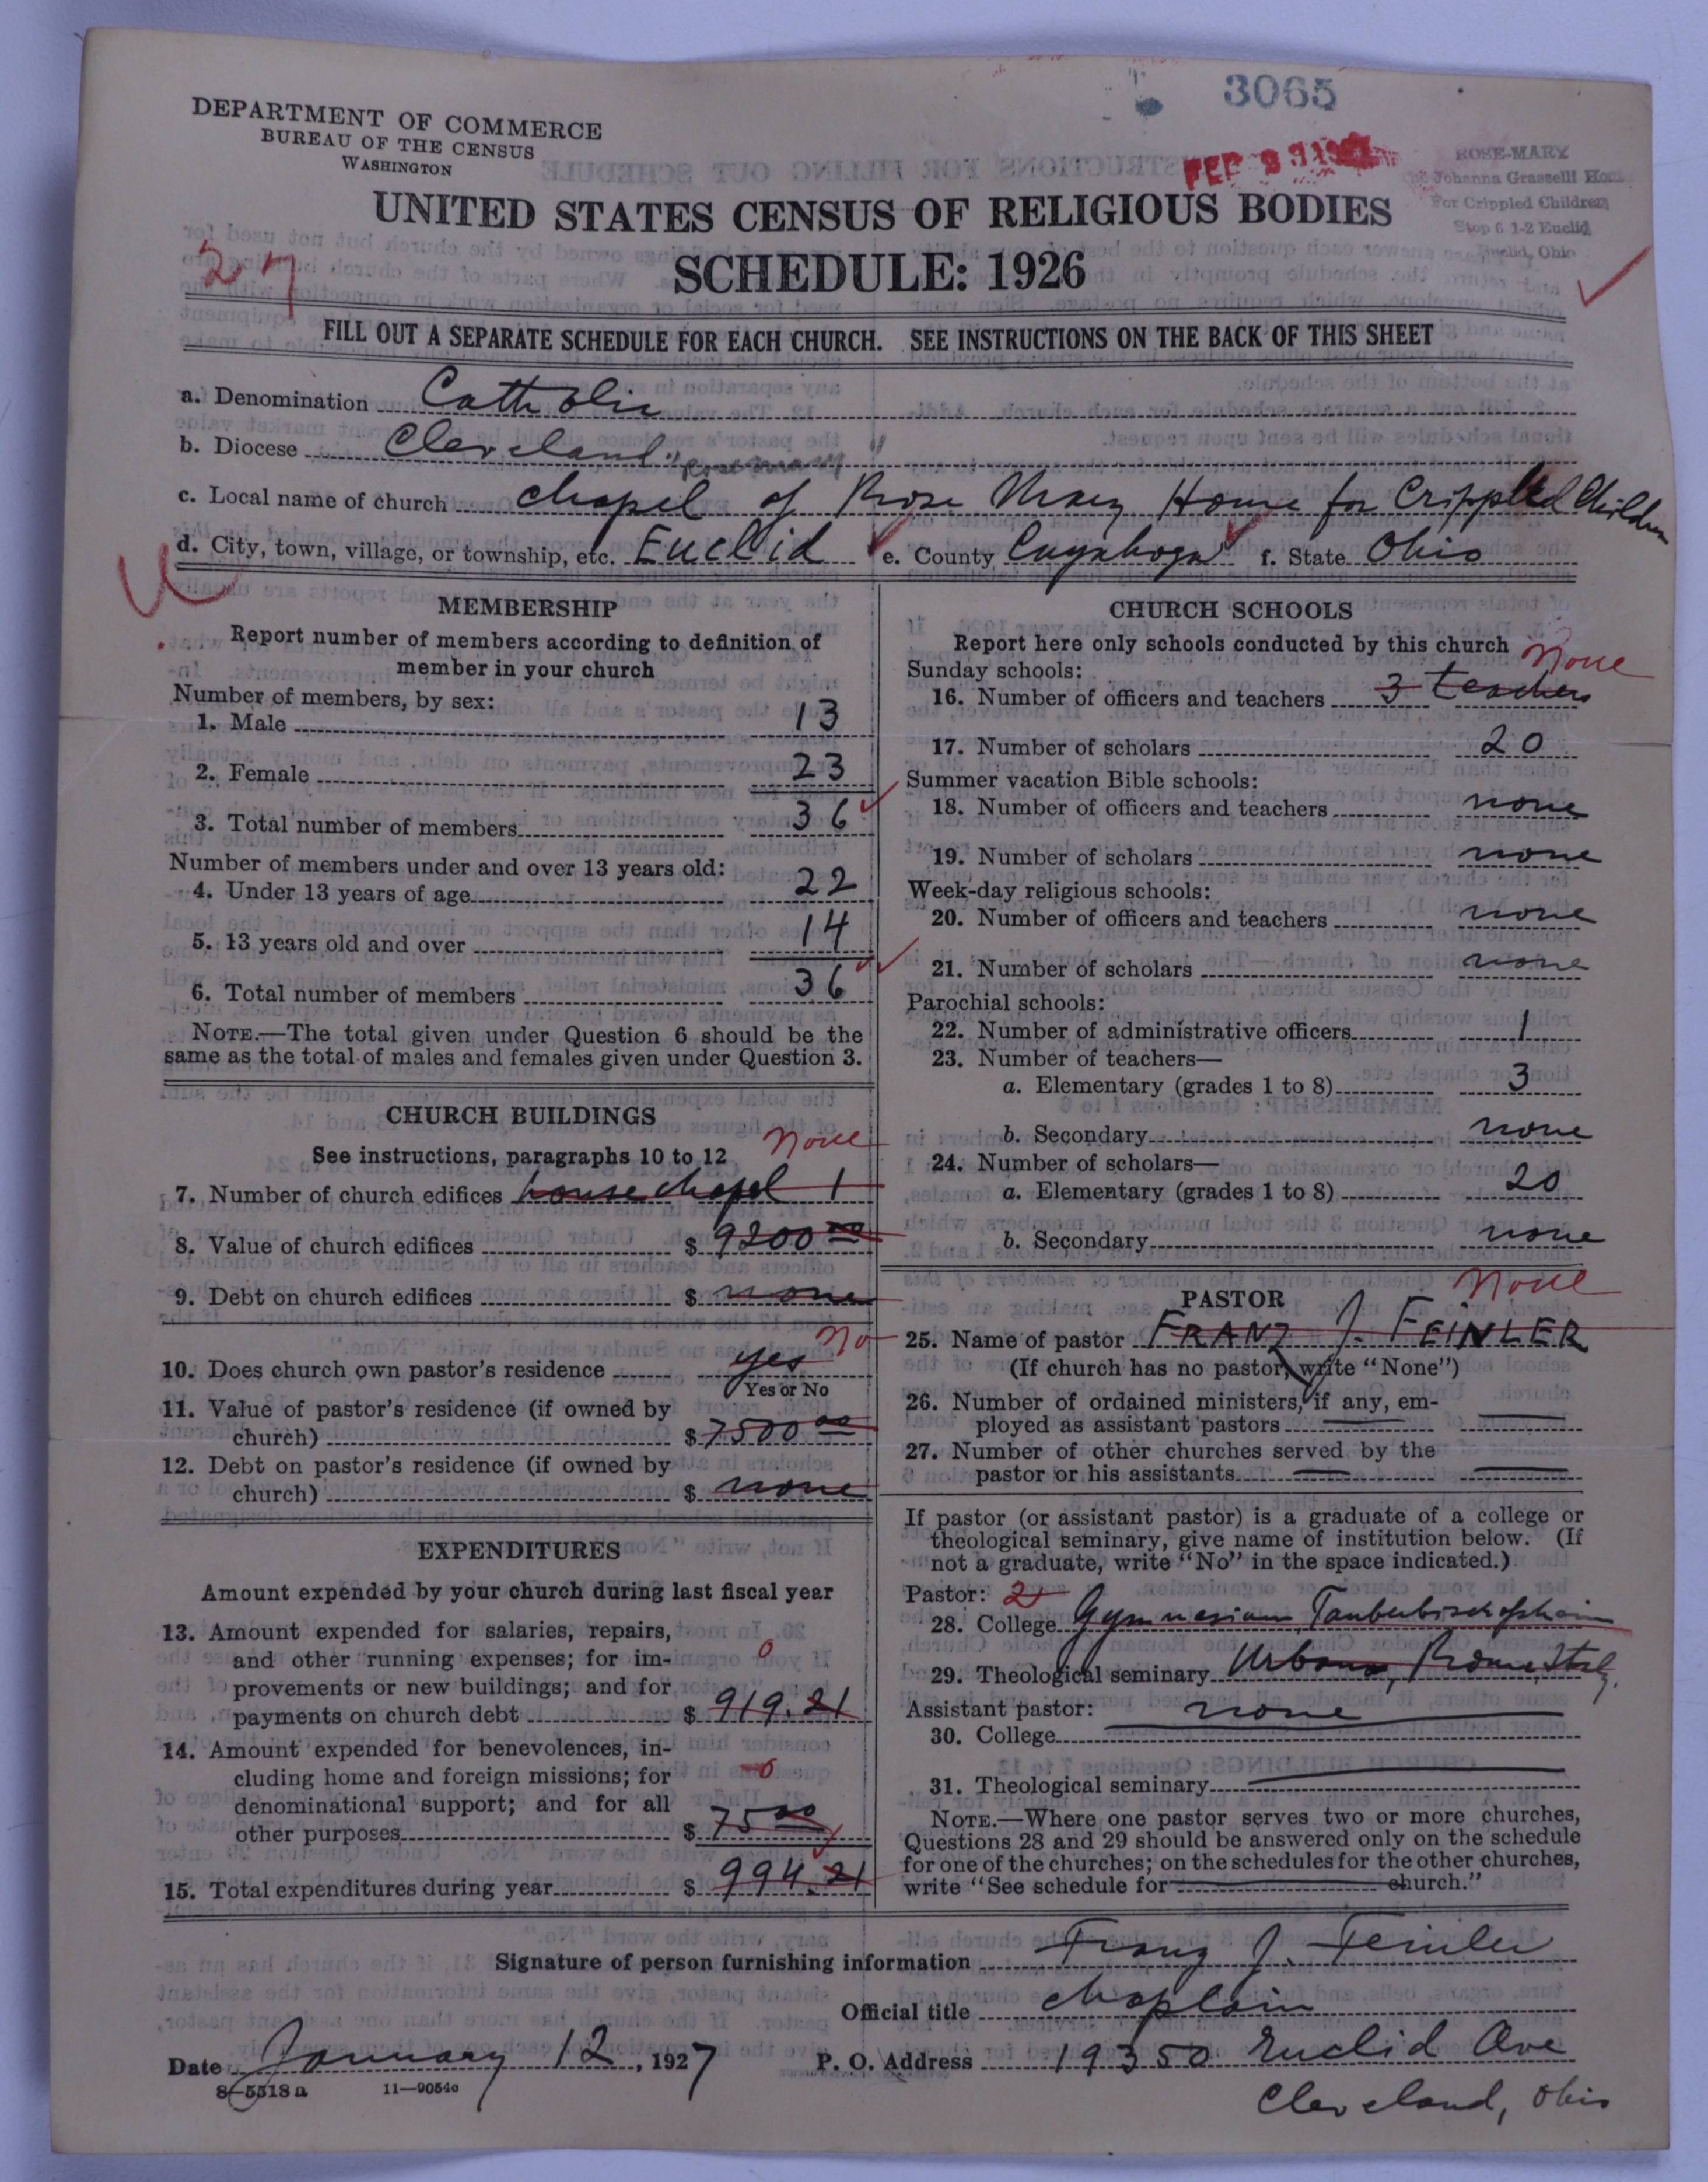 3065
DEPARTMENT OF COMMERCE
BUREAU OF THE CENSUS
WASHINGTON
FEB
ROSE-MARY
The Johanna Grasselli Home
For Crippled Children
Stop 6 1-2 Euclid
Euclid, Ohio
UNITED STATES CENSUS OF RELIGIOUS BODIES
SCHEDULE: 1926
27
FILL OUT A SEPARATE SCHEDULE FOR EACH CHURCH. SEE INSTRUCTIONS ON THE BACK OF THIS SHEET
a. Denomination Catholic
b. Diocese Cleveland "Rosemary"
c. Local name of church Chapel of Rose Mary Home for Crippled Children
d. City, town, village, or township, etc. Euclid e. County Cuyahoga f. State Ohio
MEMBERSHIP
Report number of members according to definition of
member in your church
Number of members, by sex:
1. Male 13
2. Female 23
3. Total number of members 36
Number of members under and over 13 years old:
4. Under 13 years of age 22
5. 13 years old and over 14
6. Total number of members 36
NOTE.—The total given under Question 6 should be the
same as the total of males and females given under Question 3.
CHURCH BUILDINGS
See instructions, paragraphs 10 to 12 None
7. Number of church edifices house chapel 1
8. Value of church edifices $ 9200 00
9. Debt on church edifices $ none
10. Does church own pastor's residence yes No
Yes or No
11. Value of pastor's residence (if owned by
church) $ 7500 00
12. Debt on pastor's residence (if owned by
church) $ none
EXPENDITURES
Amount expended by your church during last fiscal year
13. Amount expended for salaries, repairs,
and other running expenses; for im-
provements or new buildings; and for 0
payments on church debt $ 919.21
14. Amount expended for benevolences, in-
cluding home and foreign missions; for 0
denominational support; and for all
other purposes $ 75 00
15. Total expenditures during year $ 994.21
CHURCH SCHOOLS
Report here only schools conducted by this church None
Sunday schools:
16. Number of officers and teachers 3 teachers
17. Number of scholars 20
Summer vacation Bible schools:
18. Number of officers and teachers none
19. Number of scholars none
Week-day religious schools:
20. Number of officers and teachers none
21. Number of scholars none
Parochial schools:
22. Number of administrative officers 1
23. Number of teachers—
a. Elementary (grades 1 to 8) 3
b. Secondary none
24. Number of scholars—
a. Elementary (grades 1 to 8) 20
b. Secondary none
PASTOR None
25. Name of pastor FRANZ J. FEINLER
(If church has no pastor, write "None")
26. Number of ordained ministers, if any, em-
ployed as assistant pastors
27. Number of other churches served by the
pastor or his assistants
If pastor (or assistant pastor) is a graduate of a college or
theological seminary, give name of institution below. (If
not a graduate, write "No" in the space indicated.)
Pastor: 2
28. College Gymnasium Tauberbischofsheim
29. Theological seminary Urbana, Rome, Italy.
Assistant pastor: none
30. College
31. Theological seminary
NOTE.—Where one pastor serves two or more churches,
Questions 28 and 29 should be answered only on the schedule
for one of the churches; on the schedules for the other churches,
write "See schedule for church."
Signature of person furnishing information Franz J. Feinler
Official title Chaplain
Date January 12, 1927 P. O. Address 19350 Euclid Ave
Cleveland, Ohio
8—5518 a 11—9054c